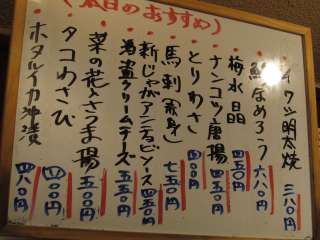 (本日のおすすめ)
イワシ明太焼 三八〇円
鯵なめろう 六八〇円
梅水晶 四五〇円
ナンコツ唐揚 四五〇円
とりわさ 四〇〇円
馬刺(赤身) 七五〇円
新じゃがアンチョビソース 四五〇円
酒盗クリームチーズ 五五〇円
菜の花とさつま揚 五五〇円
タコわさび 四〇〇円
ホタルイカ沖漬 四八〇円